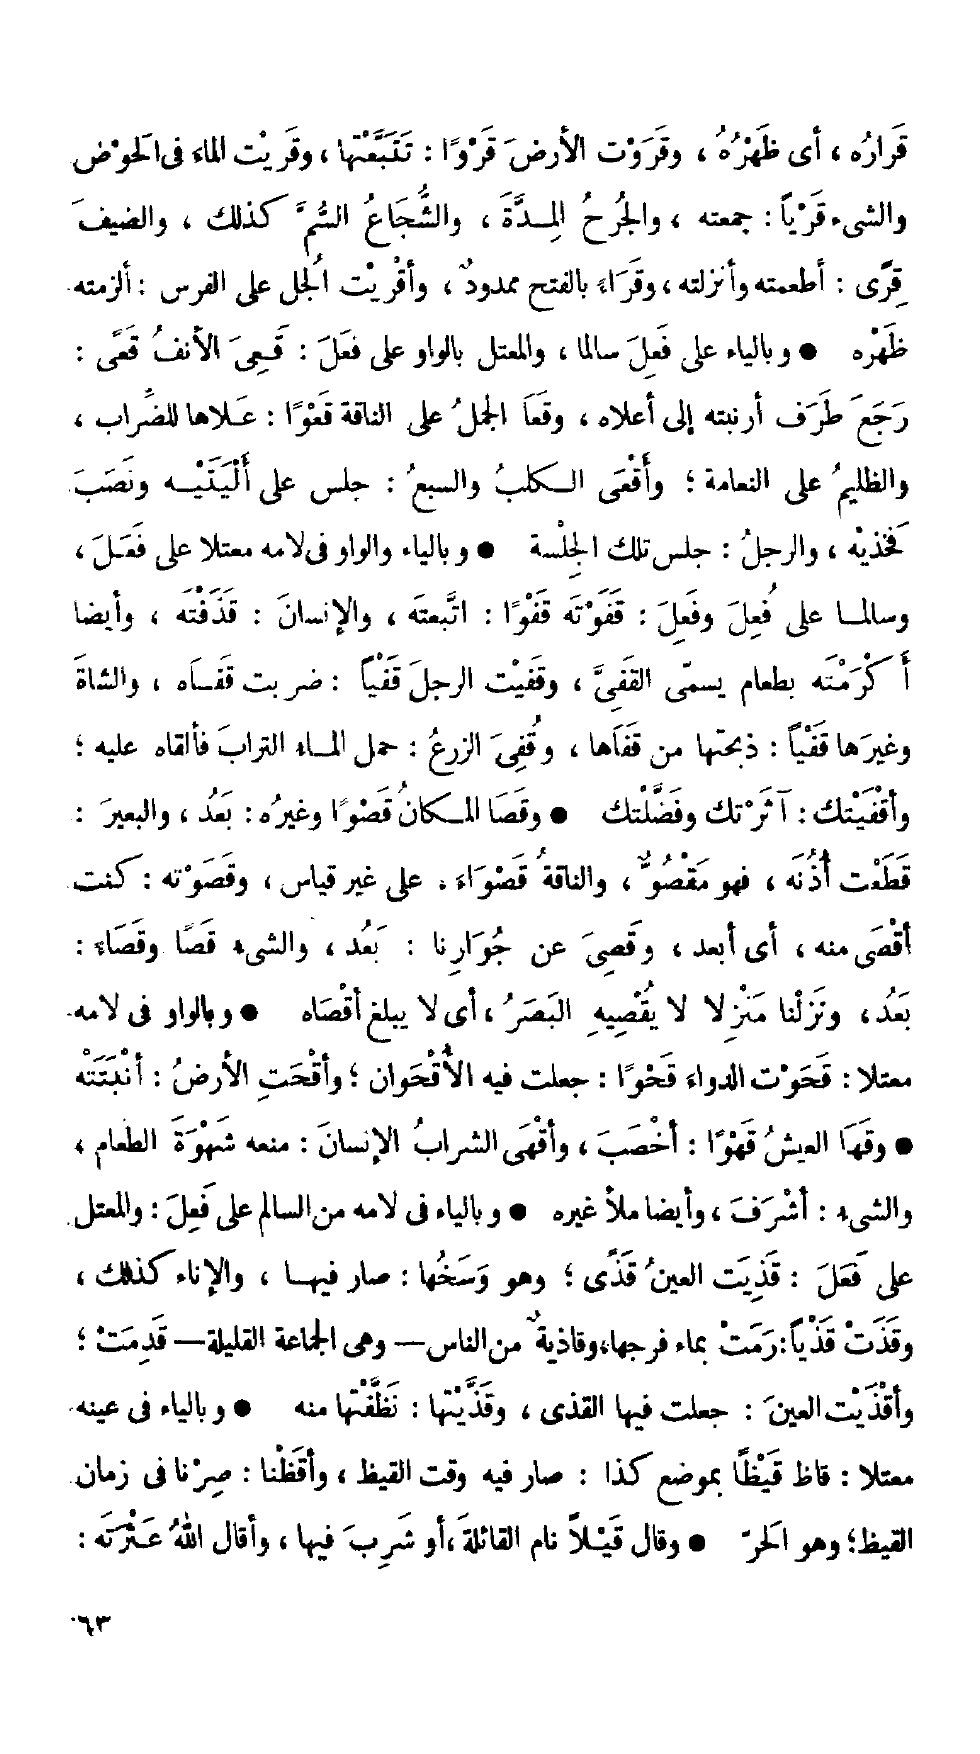 قَرارُه ، أى ظَهْرُهُ ، وقَرَوْت الأرضَ قَرْوًا : تَتَبَّعْتها ، وقَريْت الماءَ فى الحَوْض
والشىء قَرْياً : جمعته ، والجُرحُ المِـدَّةَ ، والشُّجَاعُ السُّمَّ كذلك ، والضيفَ
قِرًى : أطعمته وأنزلته ، وقَرَاءً بالفتح ممدودٌ ، وأقْريْت الجُل على الفرس : ألزمته
ظَهْره ● وبالياء على فَعِلَ سالما ، والمعتل بالواو على فَعَلَ : قَـعِىَ الأنفُ قَعًى :
رَجَعَ طَرَف أرنبته إلى أعلاه ، وقعَا الجملُ على الناقة قَعْوًا : عَـلاها للضِّراب ،
والظليمُ على النعامة ؛ وأَقْعَى الـكلبُ والسبعُ : جلس على أَلْيَتَيْـه ونَصَبَ
فَخذيْه ، والرجلُ : جلس تلك الجِلْسة ● وبالياء والواو فى لامه معتلا على فَعَـلَ ،
وسالمـا على فُعِلَ وفَعِلَ : قَفَوْتَه قَفْوًا : اتَّبعتَه ، والإنسانَ : قَذَفْتَه ، وأيضا
أَكْرَمْتَه بطعام يسمّى القَفِىَّ ، وقَفيْت الرجلَ قَفْياً : ضربت قَفـَاه ، والشاةَ
وغيرَها قَفْياً : ذبحتها من قفَاها ، وقُفِىَ الزرعُ : حمل المـاء الترابَ فألقاه عليه ؛
وأقْفَيْتك : آثَرْتك وفَضَّلْتك ● وقَصَا المـكانُ قَصْوًا وغيرُه : بَعَُد ، والبعيرَ :
قَطَعْت أُذُنَه ، فهو مَقْصُوٌّ ، والناقةُ قَصْوَاء ، على غير قياس ، وقَصَوْته : كنت
أقْصَى منه ، أى أبعد ، وقَصِىَ عن جُوَارِنا : بَعَُد ، والشىء قَصًا وقَصَاءً :
بَعَُد ، ونَزَلْنا مَنْزِلا لا يُقْصِيهِ البَصَرُ ، أى لا يبلغ أقْصَاه ● وبالواو فى لامه
معتلا : قَحَوْت الدواءَ قَحْوًا : جعلت فيه الأُقْحَوان ؛ وأقْحَتِ الأرضُ : أنْبَتَتْه
● وقَهَا العيشُ قَهْوًا : أخْصَبَ ، وأقْهَى الشرابُ الإنسانَ : منعه شَهْوَةَ الطعام ،
والشىء : أشْرَفَ ، وأيضا ملأ غيره ● وبالياء فى لامه من السالم على فَعِلَ : والمعتل
على فَعَلَ : قَذِيَت العينُ قَذًى ؛ وهو وَسَخُها : صار فيهـا ، والإناء كذلك ،
وقَذَتْ قَذْياً : رَمَتْ بماء فرجها ، وقاذيةٌ من الناس — وهى الجماعة القليلة — قَدِمَتْ ؛
وأقْذَيْت العينَ : جعلت فيها القذى ، وقَذَّيْتها : نَظَّفْتها منه ● وبالياء فى عينه
معتلا : قاظ قَيْظًا بموضع كذا : صار فيه وقت القيظ ، وأقَظْنا : صِرْنا فى زمان
القيظ؛ وهو الحَرّ ● وقال قَيْـلاً نام القائلةَ ، أو شَرِبَ فيها ، وأقال اللهُ عَـثْرَتَه :
٦٣